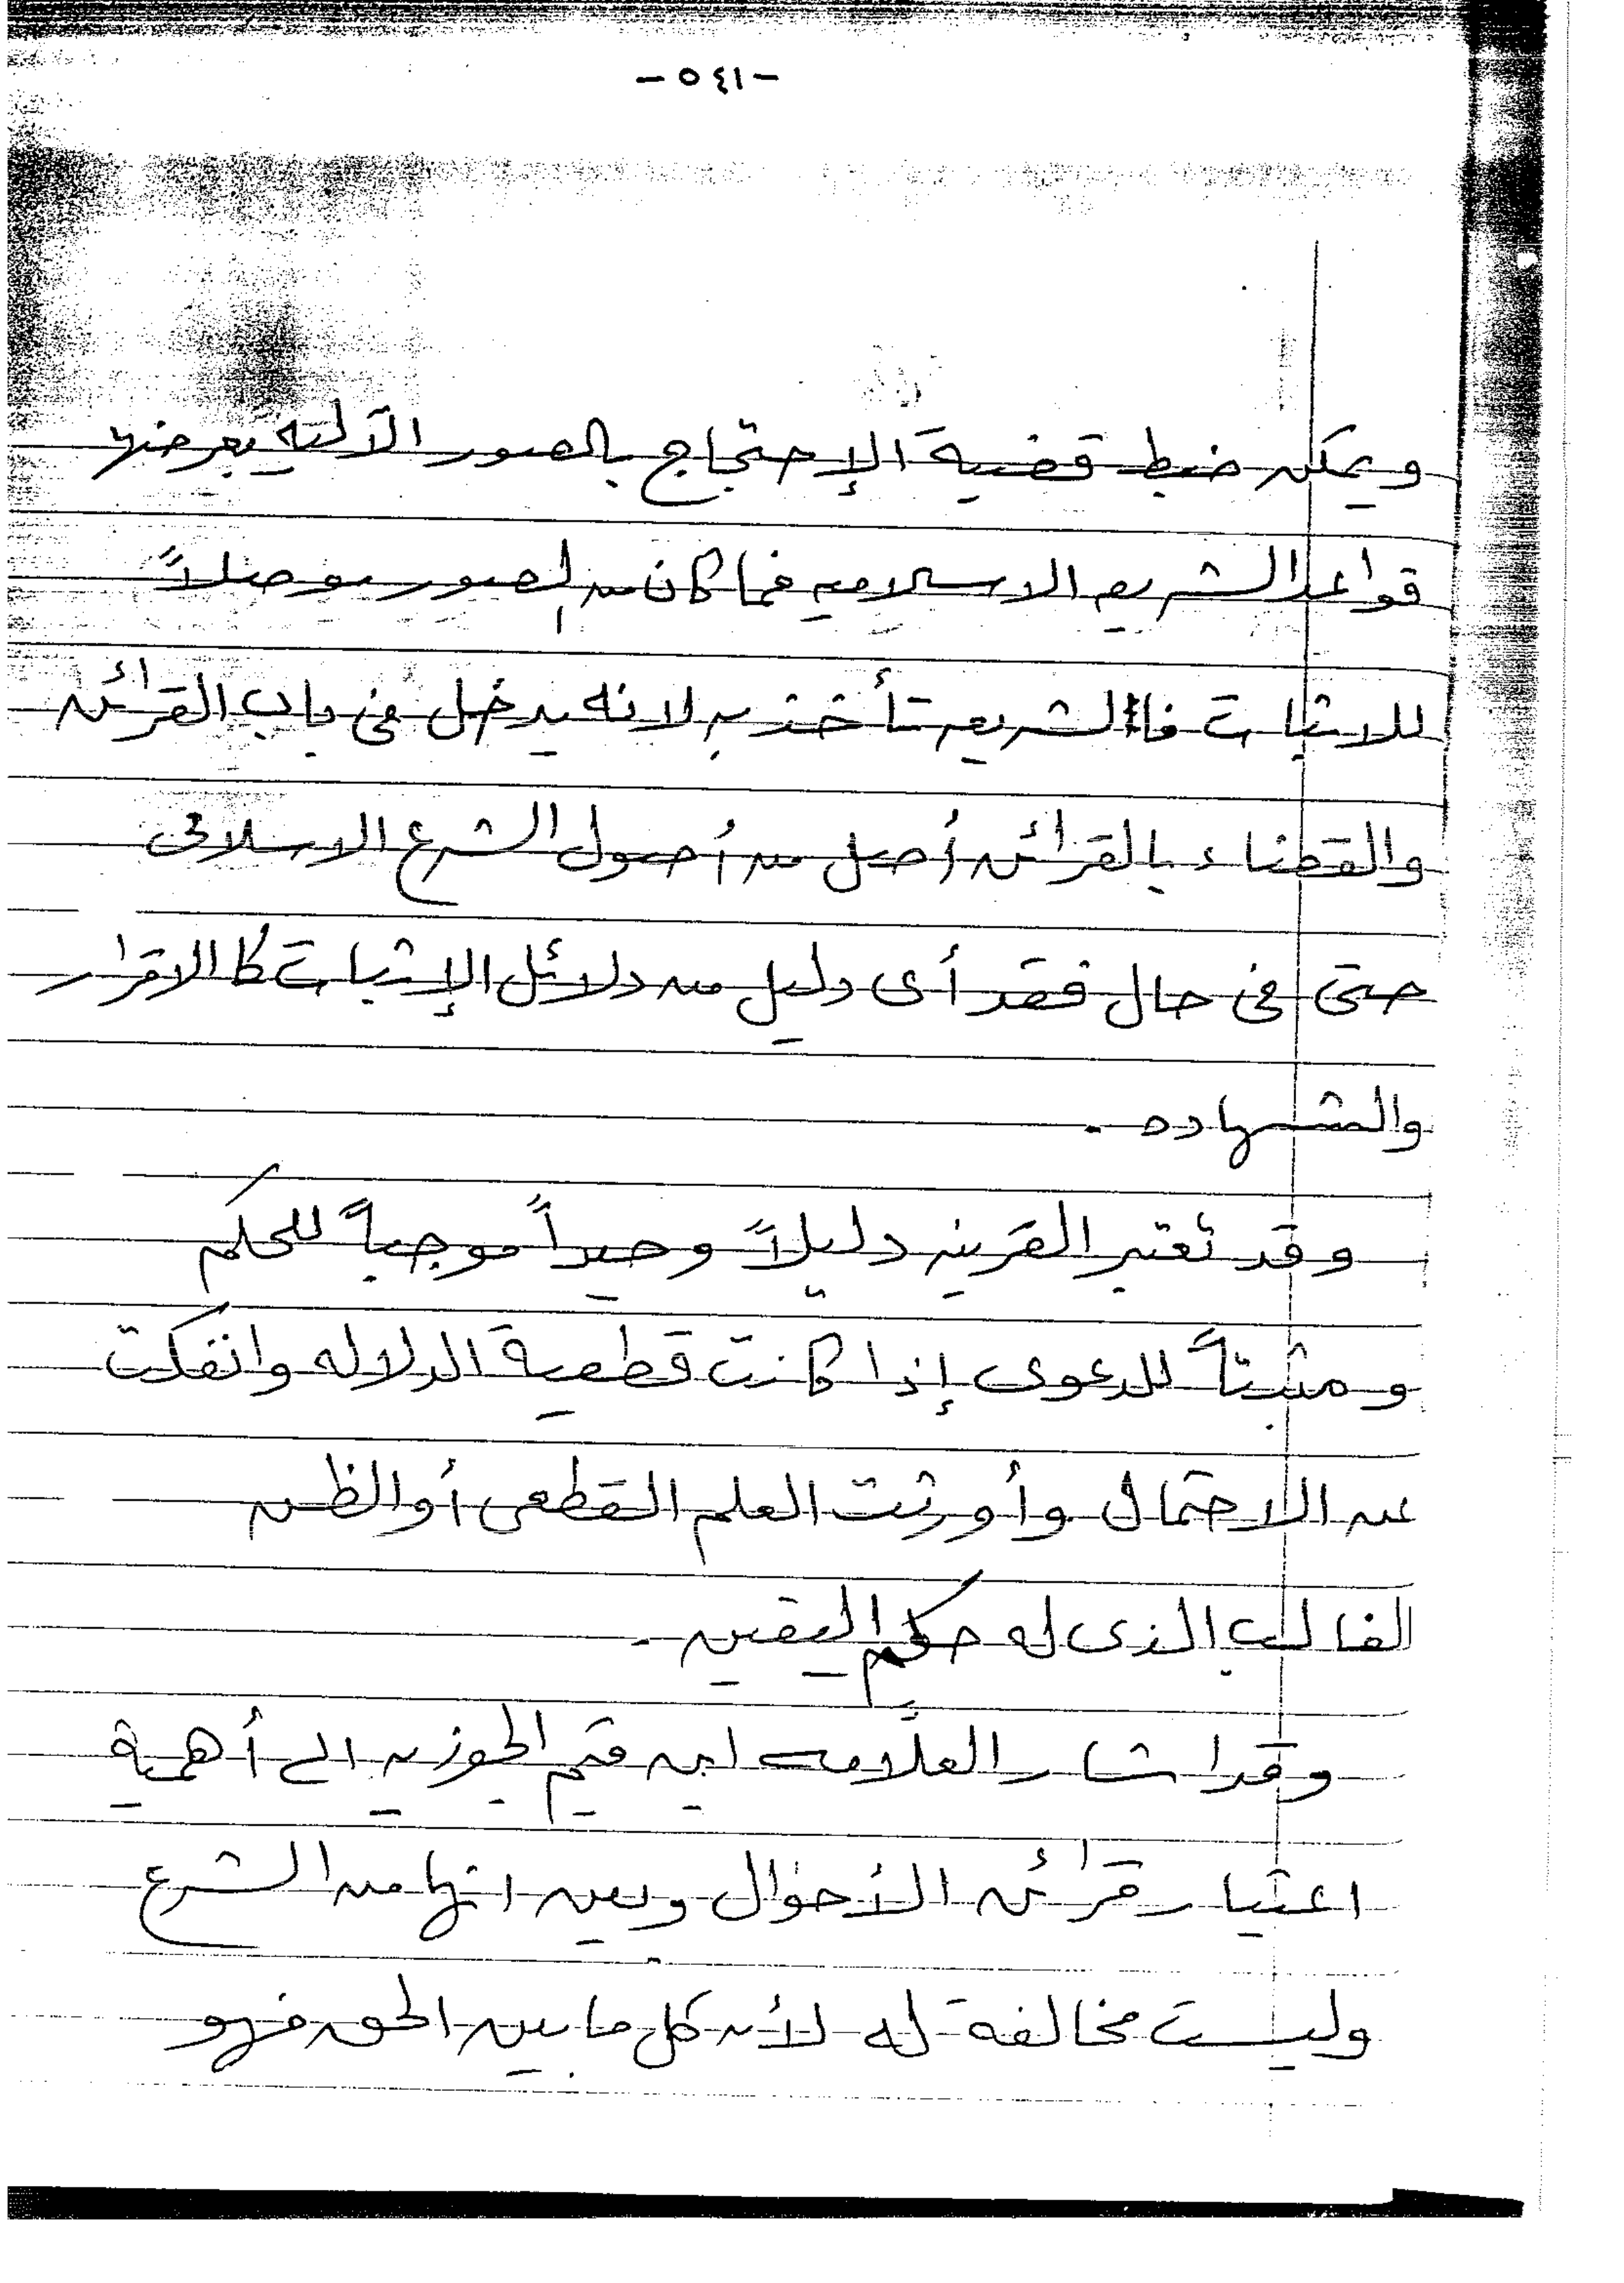 -٥٤١-
ويمكن ضبط قضية الإحتجاج بالصور الآليه بعرضها
قواعد الشريعه الاسلاميه فما كان من لصور موصلاً
للاثبات فالشريعه تأخذ به لانه يدخل فى باب القرائن
والقضاء بالقرائن أصل من أصول الشرع الاسلامى
حتى فى حال فقد أى دليل من دلائل الإثبات كالاقرار
والشهاده .
وقد تعتبر القرينه دليلاً وحيداً موجباً للحكم
ومثبتاً للدعوى إذا كانت قطعية الدلاله وانفكت
عن الاحتمال وأورثت العلم القطعى أو الظن
الغالب الذى له حكم اليقين .
وقد اشار العلاّمه ابن قيم الجوزيه الى أهمية
اعتبار قرائن الأحوال وبين انها من الشرع
وليست مخالفة له لأن كل ما بين الحق فهو